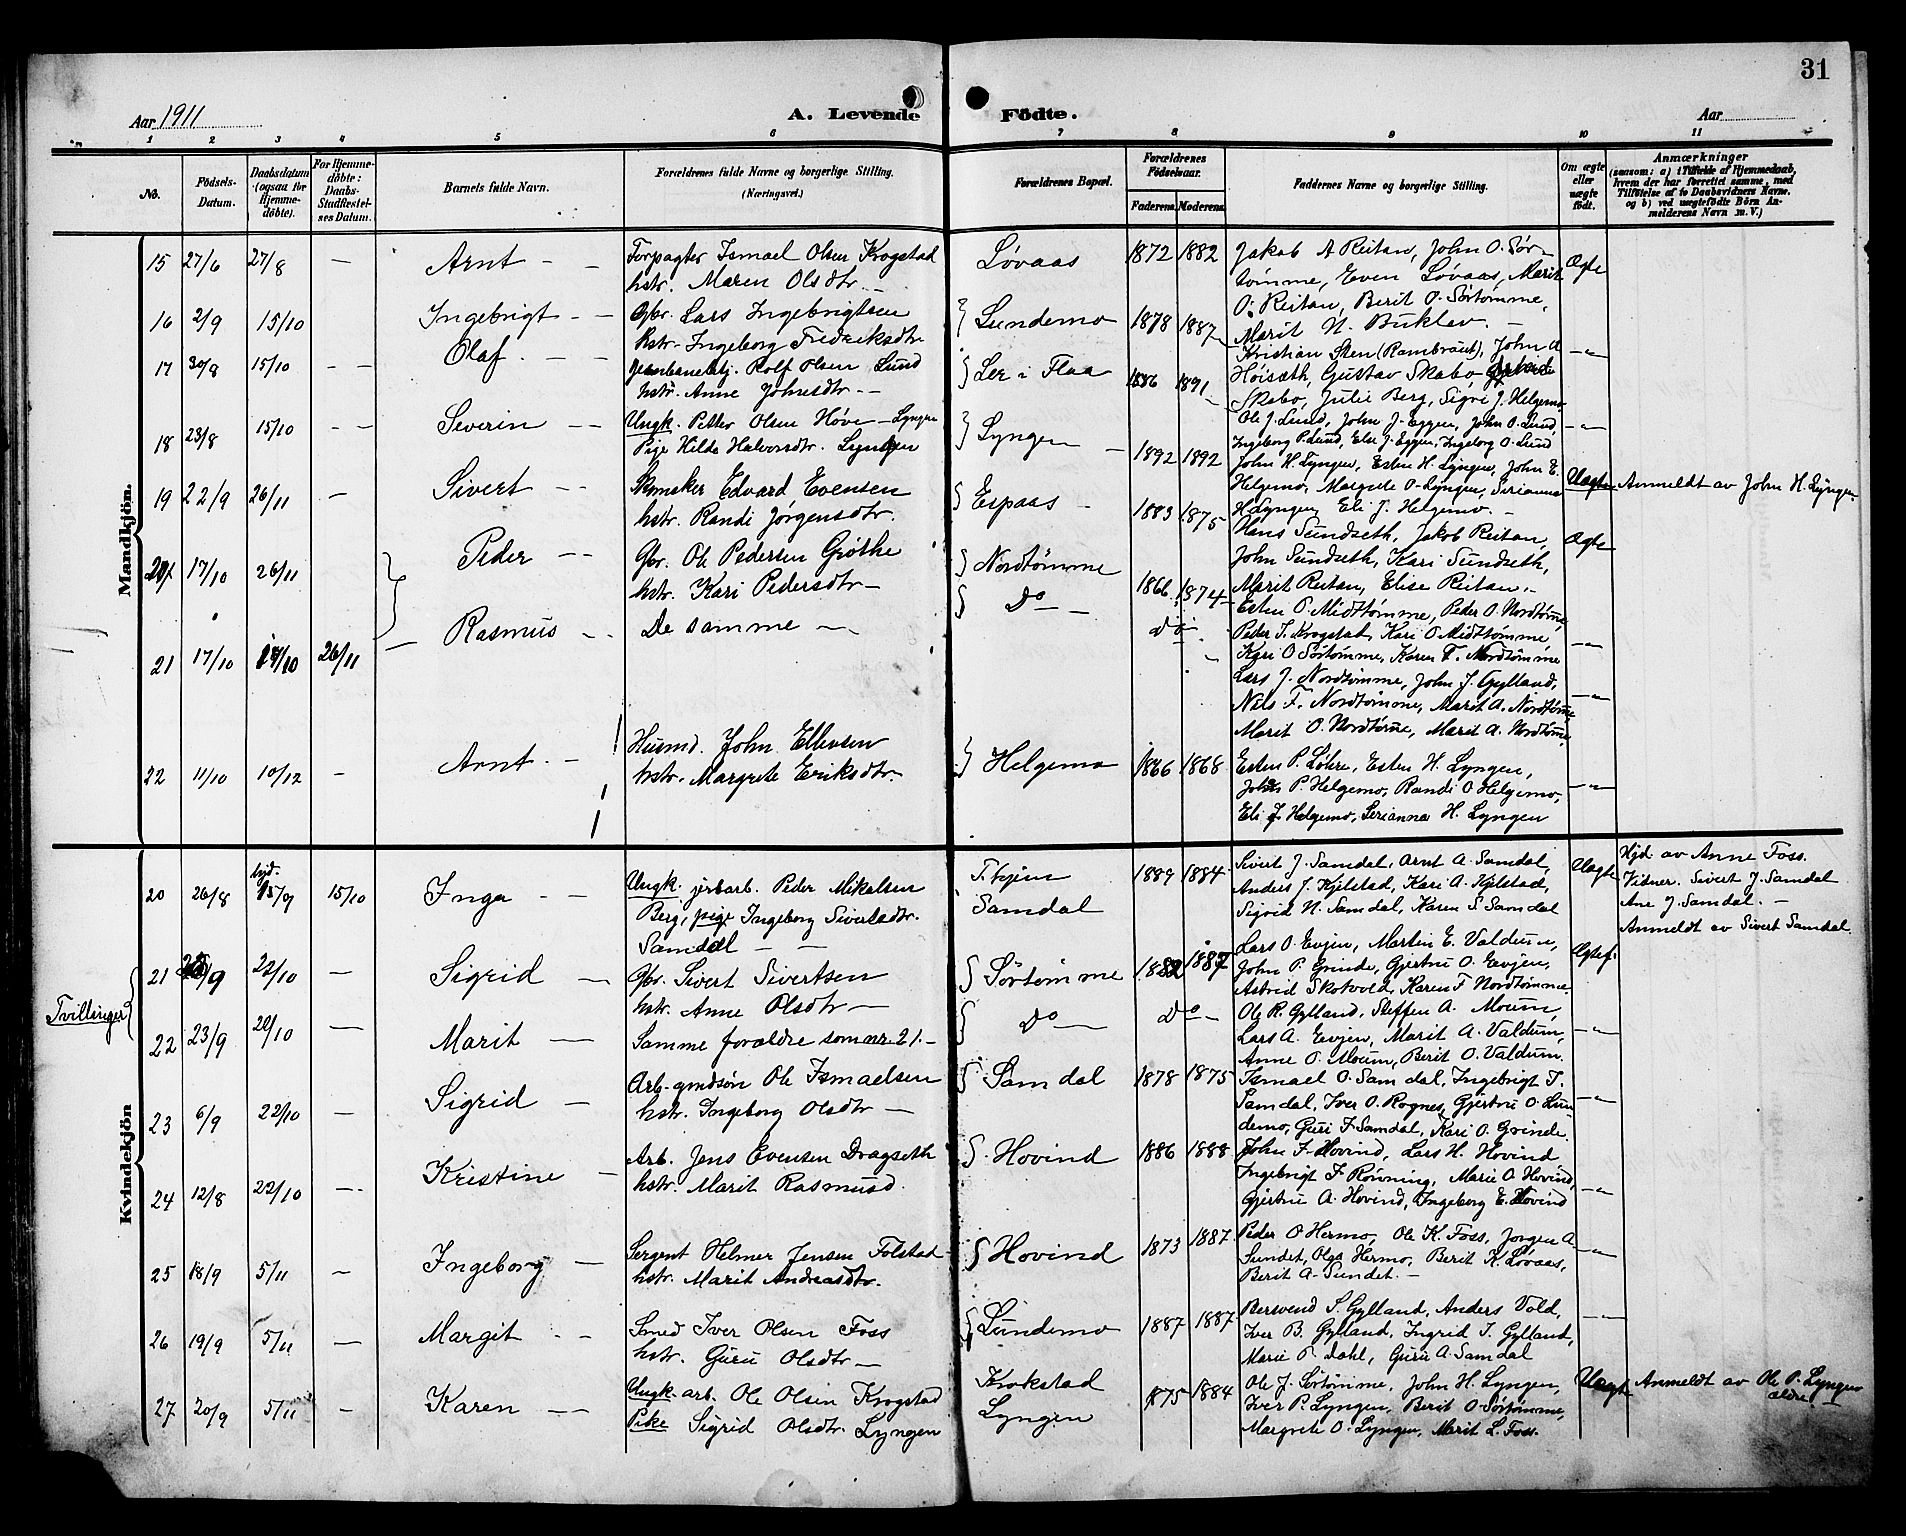 31
Aar 1911
A. Levende Födte.
Aar
1 2 3 4 5 6 7 8 9 10 11
No.
Födsels-Datum.
Daabsdatum (ogsaa for Hjemme-döbte).
For Hjemme-döbte: Daabs-Stadfæstel-ses Datum.
Barnets fulde Navn.
Forældrenes fulde Navne og borgerlige Stilling. (Næringsvei.)
Forældrenes Bopæl.
Forældrenes Födselsaar.
Faderens. Moderens.
Faddernes Navne og borgerlige Stilling.
Om ægte eller uægte födt.
Anmærkninger
(saasom: a) i Tilfælde af Hjemmedaab,
hvem der har forrettet samme, med
Tilföielse af to Daabsvidners Navne,
og b) ved uægtefödte Börn An-
melderens Navn m. V.)
Mandkjön.
15 27/6 27/8 — Arnt - - Forpagter Ismael Olsen Krogstad
hstr. Maren Olsdtr. - Løvaas 1872 1882 Jakob A Reitan, John O. Sør-
tømme, Even Løvaas, Marit Ægte
O. Reitan, Berit O. Sørtømme,
Marit N. Buklev. -
16 2/9 15/10 Ingebrigt - - Gbr. Lars Ingebrigtsen
hstr. Ingeborg Fredriksdtr. Lundemo 1878 1887 Kristian Sten (Rambraut), John A —"—
Høisæth, Gustav Skabo
Skabo, Julie Berg, Sigri J. Helgemo
17 30/8 15/10 - - Olaf - - Jernbanebtj. Rolf Olsen Lund
hstr. Anne Johnsdtr. - Ler i Flaa 1886 1891 Ole J. Lund, John J. Eggen, John O. Lund, —"—
Ingeborg P. Lund, Else J. Eggen, Ingeborg O. Lund
18 23/8 15/10 - - Severin - - Ungk. Petter Olsen Hove - Lyngen
Pige Hilda Halvorsdtr. Lyngen Lyngen 1892 1892 John H. Lyngen, Esten H. Lyngen, John E.
Helgemo, Margrete O. Lyngen, Serianna Uægte Anmeldt av John H. Lyngen
H. Lyngen, Eli J. Helgemo. -
19 22/9 26/11 - Sivert - - Skomaker Edvard Evensen
hstr. Randi Jørgensdtr. Espaas - 1883 1875 Hans Sundseth, Jakob Reitan, Ægte
John Sundseth, Kari Sundseth,
Marit Reitan, Elise Reitan. -
20 17/10 26/11 Peder - - Gbr. Ole Pedersen Grøthe
hstr. Kari Pedersdtr - Nordtømme 1866 1874 Esten P. Midttømme, Peder O. Nordtømme,
Peder I. Krogstad, Kari O Midttømme —"—
Kari O Sørtømme, Karen F. Nordtømme
21 17/10 17/10 26/11 — Rasmus - - De samme - Do - do Lars J. Nordtømme, John J. Gylland, —"—
Nils F. Nordtømme, Marit A. Nordtømme
Marit O. Nordtømme, Marit A. Nordtømme,
22 11/10 10/12 - Arnt - - Husmd. John Ellevsen
hstr. Margrete Eriksdtr. Helgemo 1866 1868 Esten P. Løhre, Esten H. Lyngen,
John P. Helgemo, Randi O Helgemo, —"—
Eli J Helgemo, Serianna H. Lyngen
Kvindekjön
20 26/8 hjd. 15/9 15/10 Inga - - Ungk. jrbarb. Peder Mikalsen
Berg, pige Ingeborg Sivertsdtr.
Samdal - - T.hjem
Samdal 1889 1884 Sivert J. Samdal, Arnt A. Samdal,
Anders J. Kjelstad, Kari A. Kjelstad,
Sigrid N. Samdal, Karen S Samdal Uægte Hjd. av Anne Foss.
Vidner. Sivert J. Samdal
Ane J. Samdal. -
Anmeldt av Sivert Samdal.
Tvillinger
21 23/9 22/10 - Sigrid - Gbr. Sivert Sivertsen
hstr. Anne Olsdtr - Sørtømme 1882 1887 Lars O. Evjen, Martin E. Valdum, Ægtef.
John P. Grinde, Gjertru O. Evjen,
Astrid Skotvold, Karen F Nordtømme.
22 23/9 22/10 - Marit - Samme forældre som nr. 21. - Do - Do - Ole R. Gylland, Steffen A. Moum,
Lars A. Evjen, Marit A. Valdum, —"—
Anne O. Moum, Berit O. Valdum.
23 6/9 22/10 - Sigrid - Arb. gmdsøn Ole Ismaelsen
hstr. Ingeborg Olsdtr - Samdal 1878 1875 Ismael O. Samdal, Ingebrigt I.
Samdal, Iver O. Rognes, Gjertru O. Lun- —"—
demo, Guri I. Samdal, Kari O. Grinde.
24 12/8 22/10 - Kristine - Arb. Jens Evensen Dragseth
hstr. Marit Rasmusd. Hovind 1886 1888 John F Hovind, Lars H. Hovind
Ingebrigt F. Rønning, Marie O. Hovind, —"—
Gjertru A. Hovind, Ingeborg E. Hovind
25 18/9 5/11 - Ingeborg - Sergent Helmer Jensen Folstad
hstr. Marit Andreasdtr. Hovind 1873 1887 Peder O Hermo, Ole K. Foss, Jørgen A. —"—
Sundet, Olga Hermo, Berit K. Løvaas,
Berit A. Sundet. -
26 19/9 5/11 - Margit - - Smed Iver Olsen Foss
hstr. Guru Olsdtr - Lundemo 1887 1887 Bersvend S. Gylland, Anders Vold, —"—
Iver B. Gylland, Ingrid I. Gylland,
Marie P. Dahl, Guru A. Samdal
27 20/9 5/11 - Karen - - Ungk. arb. Ole Olsen Krogstad
Pike Sigrid Olsdtr. Lyngen Krokstad
Lyngen 1875 1884 Ole J. Sørtømme, John H. Lyngen,
Iver P. Lyngen, Berit O. Sørtømme,
Margrete O. Lyngen, Marit L. Foss. Uægte Anmeldt av Ole P. Lyngen
ældre